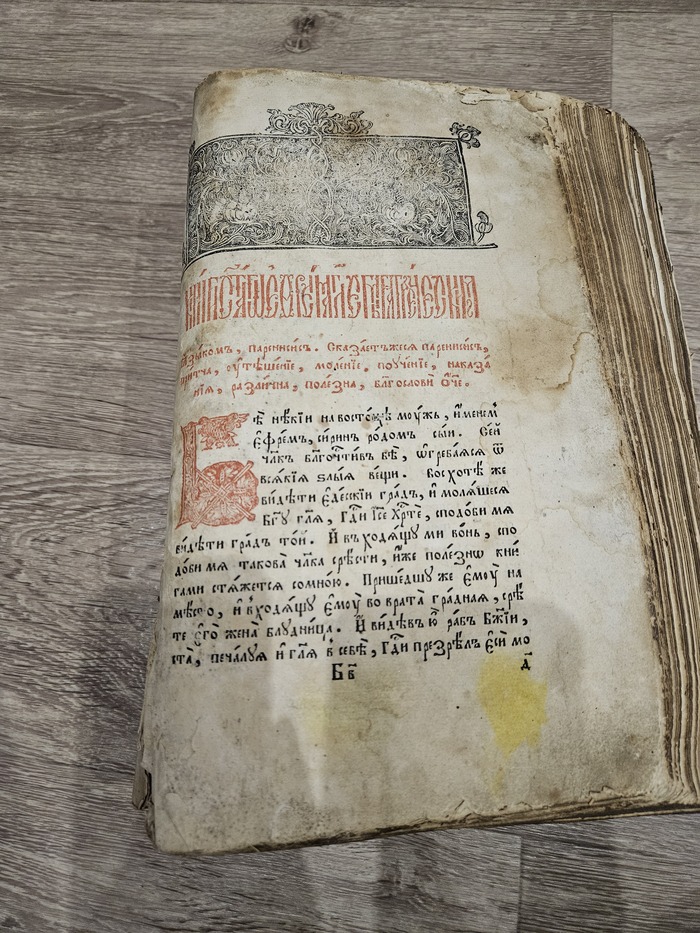 ѧзы́комъ, паренисисъ. Сказа́етъжеся паренисисъ,
при́тча, оу҆тѣше́нїе, моле́нїе, поуче́нїе, наказа́
нїѧ, разли́чна, поле́зна, бл҃гослови̑ ѻ҆́ч҃е.
Бѣ̀ нѣ́кїи на восто́цѣ моу́жь, и҆́менемъ
є҆фре́мъ, си́ринъ ро́домъ сы́и. Се́й
чл҃къ бл҃гоч҇ти́въ бѣ̀, ѡ҆гребаѧсѧ ѿ
всѧ́кїѧ ѕлы́ѧ ве́щи. Восхотѣ́ же
ви́дѣти є҆де́сскїи гра́дъ, и҆ молѧ́шесѧ
бг҃у гл҃ѧ, гдⷭ҇и і҆с҃е хрⷭ҇тѐ, сподо́би мѧ
ви́дѣти гра́дъ то́и. И҆ въходѧ́щу ми во́нь, спо
до́би мѧ такова̀ чл҃ка срѣ́сти, и҆́же поле́знѡ кни́
гами стѧ́жетсѧ сомно́ю. Прише́дшу же є҆моу̀ на
мѣ́сто, и҆ входѧ́щу є҆моу̀ во врата̀ гра́днаѧ, срѣ́
те є҆го̀ жена̀ блудни́ца. И҆ ви́дѣвъ ю҆̀ ра́бъ бж҃їи,
ста̀, печа́луѧ и҆ гл҃ѧ в себѣ̀, гдⷭ҇и презрѣ́лъ є҆сѝ мо
Бв д҃